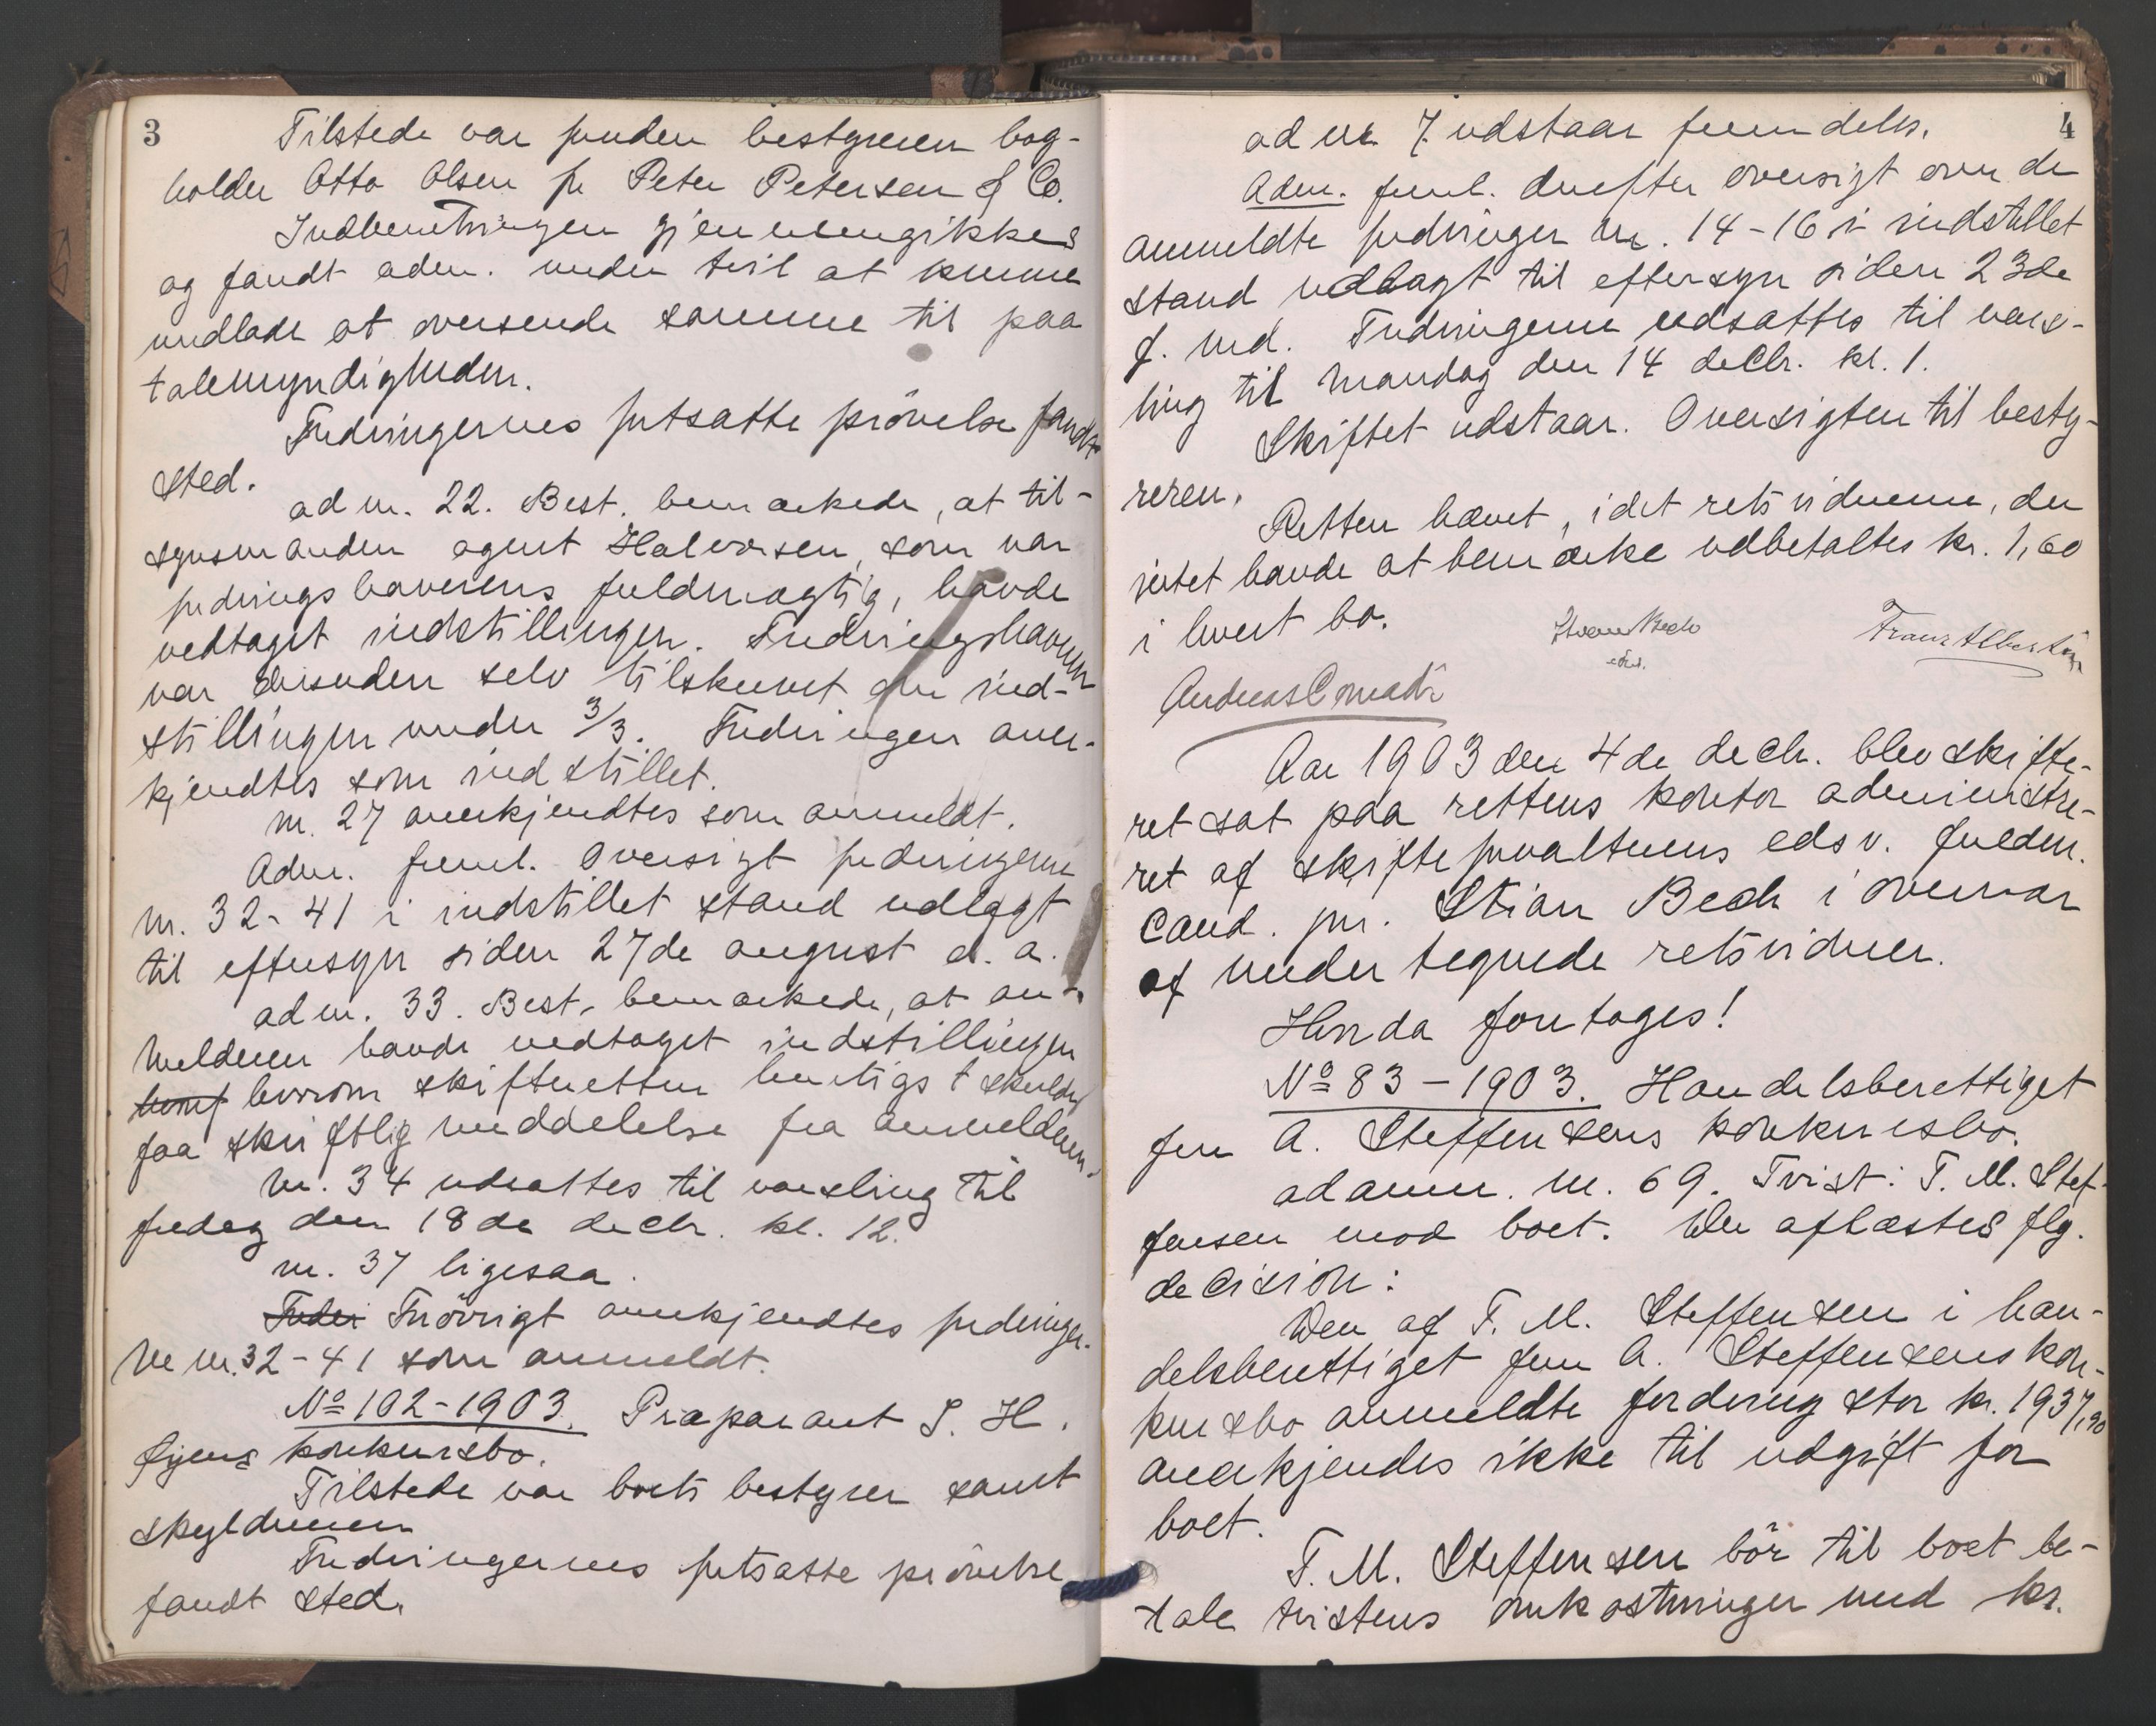 3
Tilstede var foruden bestyreren bog-
holder Otto Olsen for Peter Petersen & Co.
Indberetningen gjennemgikkes
og fandt adm. uden tvil at kunne
undlade at oversende samme til paa
talemyndigheden.
Fordringernes fortsatte prövelse fandt
sted.
ad nr. 22. Best. bemærkede, at til-
synsmanden agent Halvorsen, som var
fordringshaverens fuldmægtig, havde
vedtaget indstillingen. Fordringshaveren
var desuden selv tilskrevet om ind-
stillingen under 3/3. Fordringen aner-
kjendtes som indstillet.
nr. 27 anerkjendtes som anmeldt.
Adm. freml. oversigt fordringerne
nr. 32-41 i indstillet stand udlagt
til eftersyn siden 27de august d. a.
ad nr. 33. Best. bemærkede, at an-
melderen havde vedtaget indstillingen
hvorom skifteretten hurtigst skulde
faa skriftlig meddelelse fra anmelderen.
nr. 34 udsattes til varsling til
fredag den 18de decbr. kl. 12.
nr. 37 ligesaa.
Fordri Forövrigt anerkjendtes fordringer-
ne nr. 32-41 som anmeldt.
No 102-1903. Præparant S. H.
konkursbo.
Tilstede var boets bestyrer samt
skyldneren
Fordringernes fortsatte prövelse
fandt sted.
4
ad nr. 7 udstaar fremdeles.
Adm. freml. derefter oversigt over de
anmeldte fordringer nr. 14-16 i indstillet
stand udlagt til eftersyn siden 23de
f. md. Fordringerne udsattes til vars-
ling til mandag den 14 decbr. kl. 1.
Skiftet udstaar. Oversigten til besty-
reren.
Retten hævet, idet retsvidnerne, der
intet havde at bemærke udbetaltes kr. 1,60
i hvert bo.
Stian Bech
edsv.
Franz Albertsen
Andreas Conradi
Aar 1903 den 4de decbr. blev skifte-
ret sat paa rettens kontor administre-
ret af skifteforvalterens edsv. fuldm.
cand. jur. Stian Bech i overvær
af undertegnede retsvidner.
Hvorda foretoges!
No 83-1903. Handelsberettiget
fru A. Steffensens konkursbo.
ad anm. nr. 69. Tvist: T. M. Stef-
fensen mod boet. Der aflæstes flg.
decision:
Den af T. M. Steffensen i han-
delsberettiget fru A. Steffensens kon-
kursbo anmeldte fordring stor kr. 1937,90
anerkjendes ikke til udgift for
boet.
T. M. Steffensen bör til boet be-
tale tvistens omkostninger med kr.